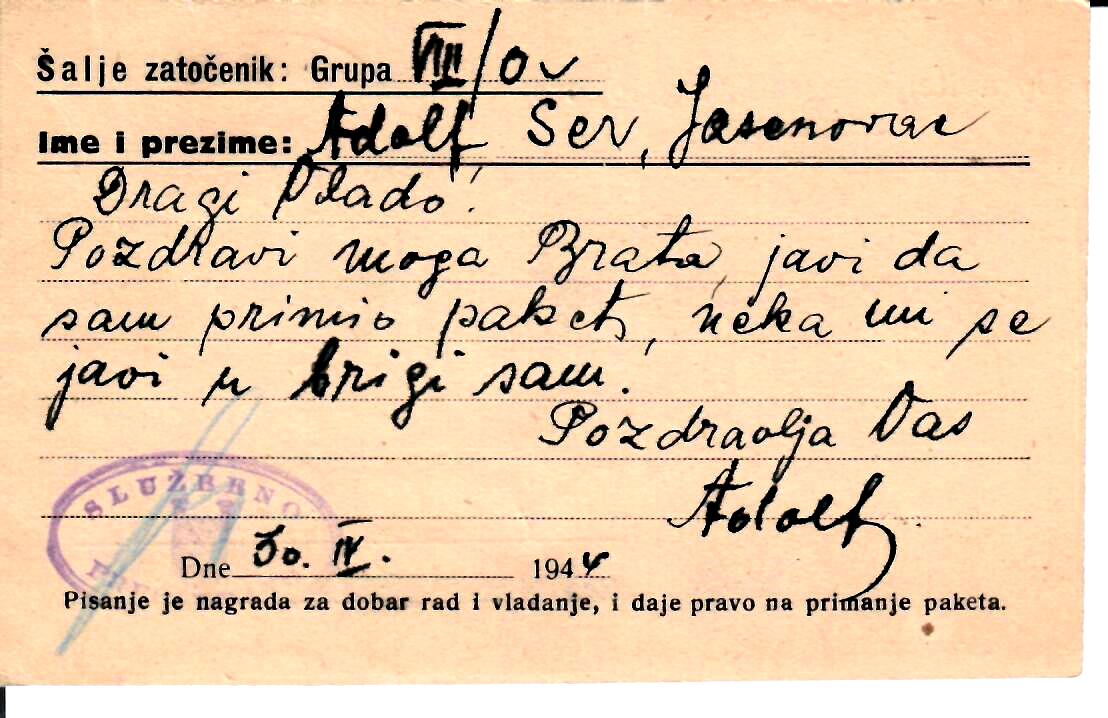 Šalje zatočenik: Grupa VIII/Ov
Ime i prezime: Adolf Ser, Jasenovac
Dragi Vlado!
Pozdravi moga Brata, javi da
sam primio paket, neka mi se
javi u brigi sam.
Pozdravlja Vas
Adolf
SLUŽBENO
Dne 30. IV. 1944
Pisanje je nagrada za dobar rad i vladanje, i daje pravo na primanje paketa.